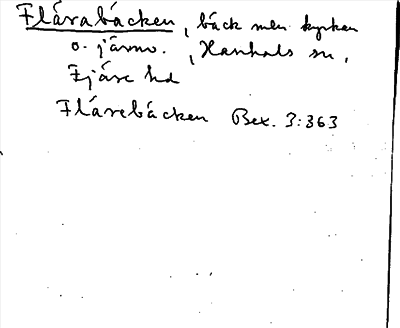 Flårabäcken, bäck mln kyrkan
o. järnv., Hanhals sn,
Fjäre hd
Flårebäcken Bex. 3:363